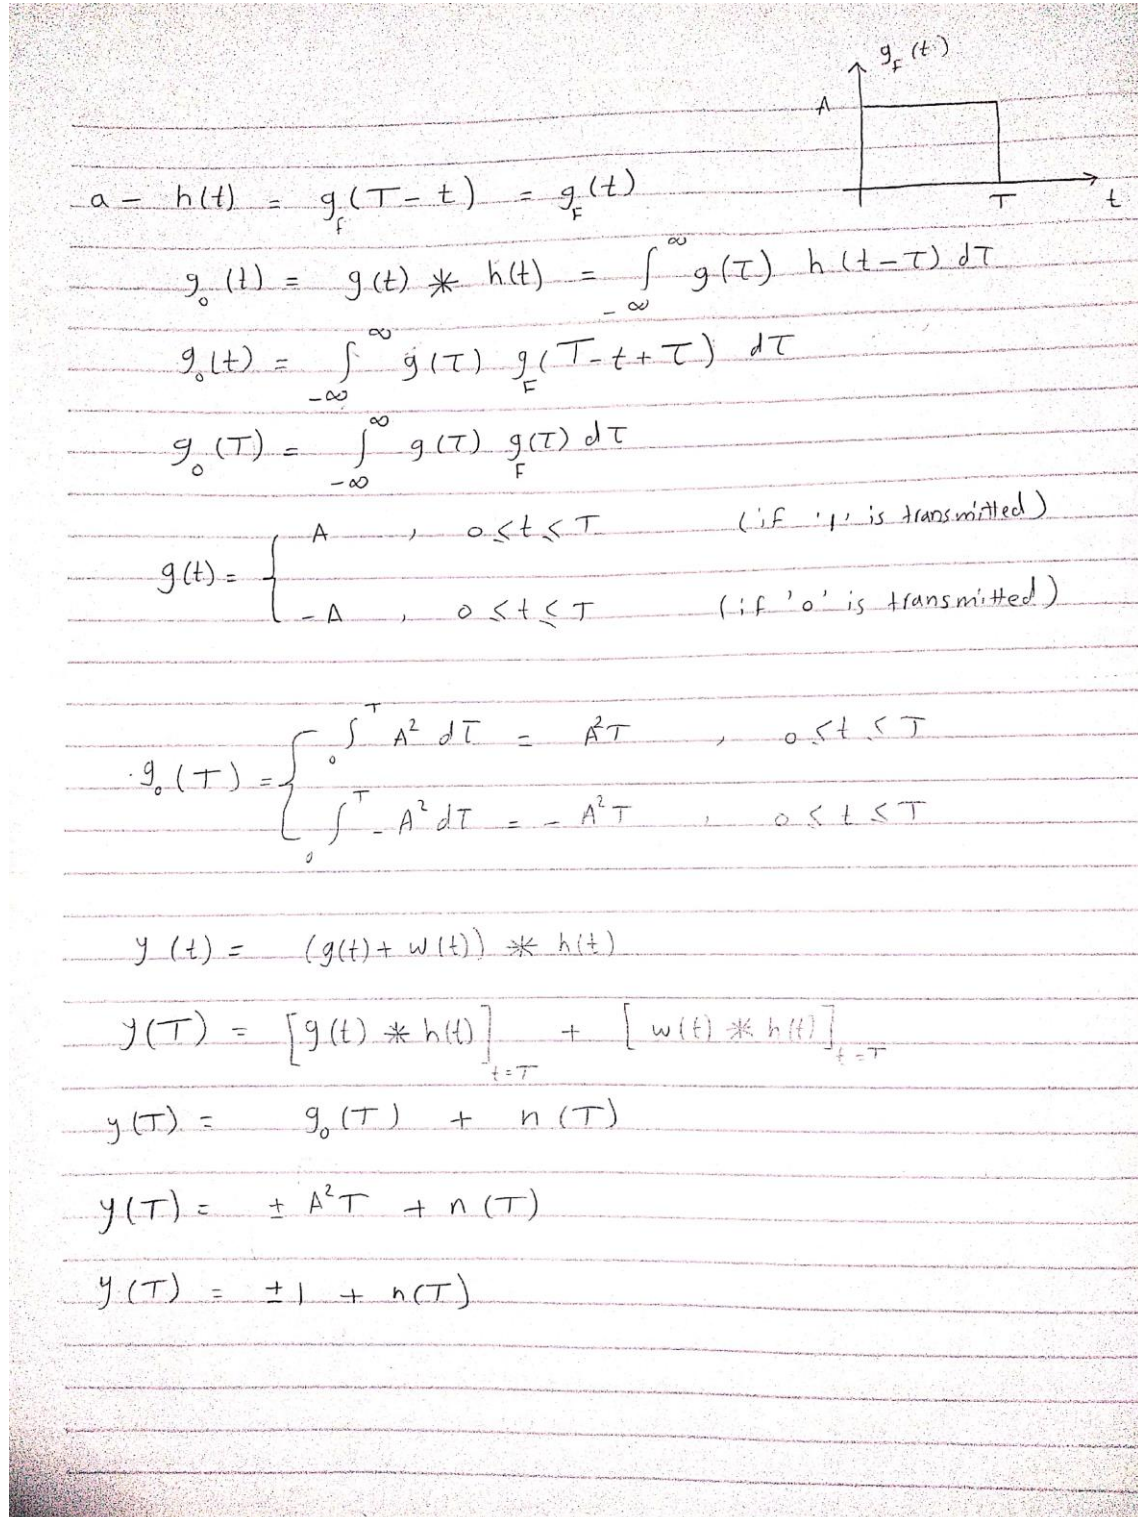 g_F(t)
A
T
t
a - h(t) = g_f(T-t) = g_F(t)
g_o(t) = g(t) * h(t) = ∫_{-∞}^{∞} g(τ) h(t-τ) dτ
g_o(t) = ∫_{-∞}^{∞} g(τ) g_F(T-t+τ) dτ
g_o(T) = ∫_{-∞}^{∞} g(τ) g_F(τ) dτ
g(t) = { A , 0≤t≤T (if '1' is transmitted)
-A , 0≤t≤T (if '0' is transmitted)
g_o(T) = { ∫_0^T A² dτ = A²T , 0≤t≤T
∫_0^T -A² dτ = -A²T , 0≤t≤T
y(t) = (g(t) + w(t)) * h(t)
y(T) = [g(t) * h(t)]_{t=T} + [w(t) * h(t)]_{t=T}
y(T) = g_o(T) + n(T)
y(T) = ± A²T + n(T)
y(T) = ±1 + n(T)